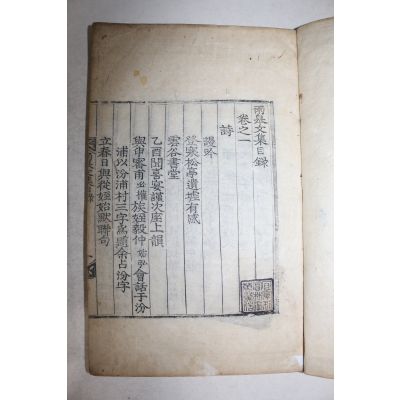 雨文集目錄
卷之一
詩
謾吟
登寒松亭遺墟有感
雲谷書堂
乙酉聞喜宴謹次座上韻
與申審甫必權族姪毅仲始弘會話于汾
浦以汾浦村三字爲題余占汾字
立春日與從姪始默聯句